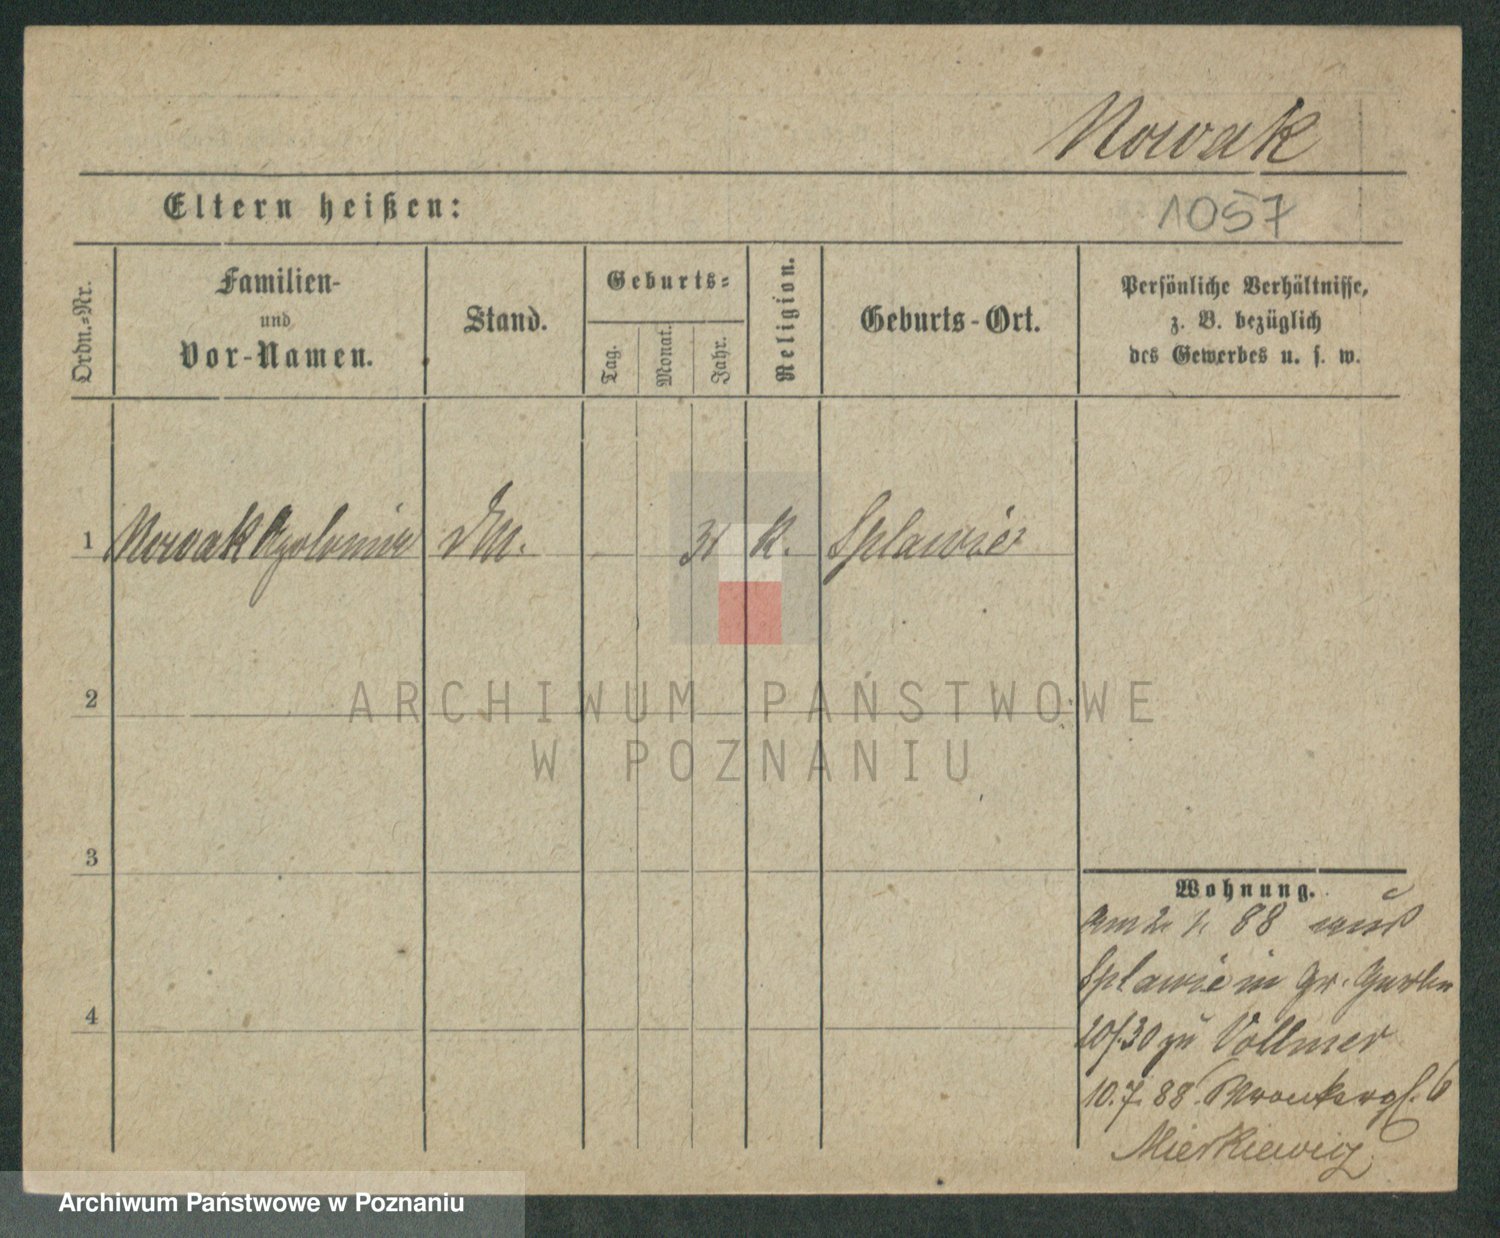 Nowak
1057
Eltern heißen:
Ordn.-Nr.
Familien-
und
Vor-Namen.
Stand.
Geburts-
Tag.
Monat.
Jahr.
Religion.
Geburts-Ort.
Persönliche Verhältnisse,
z. B. bezüglich
des Gewerbes u. s. w.
1 Nowak Apolonia 31 K. Splawie
2
3
4
Wohnung.
am 2. 1. 88 aus
Splawie in Gr. Gerber
zu Vollmer
10.7.88. Wronkergs. 6
Mierkiewicz
ARCHIWUM PAŃSTWOWE
W POZNANIU
Archiwum Państwowe w Poznaniu